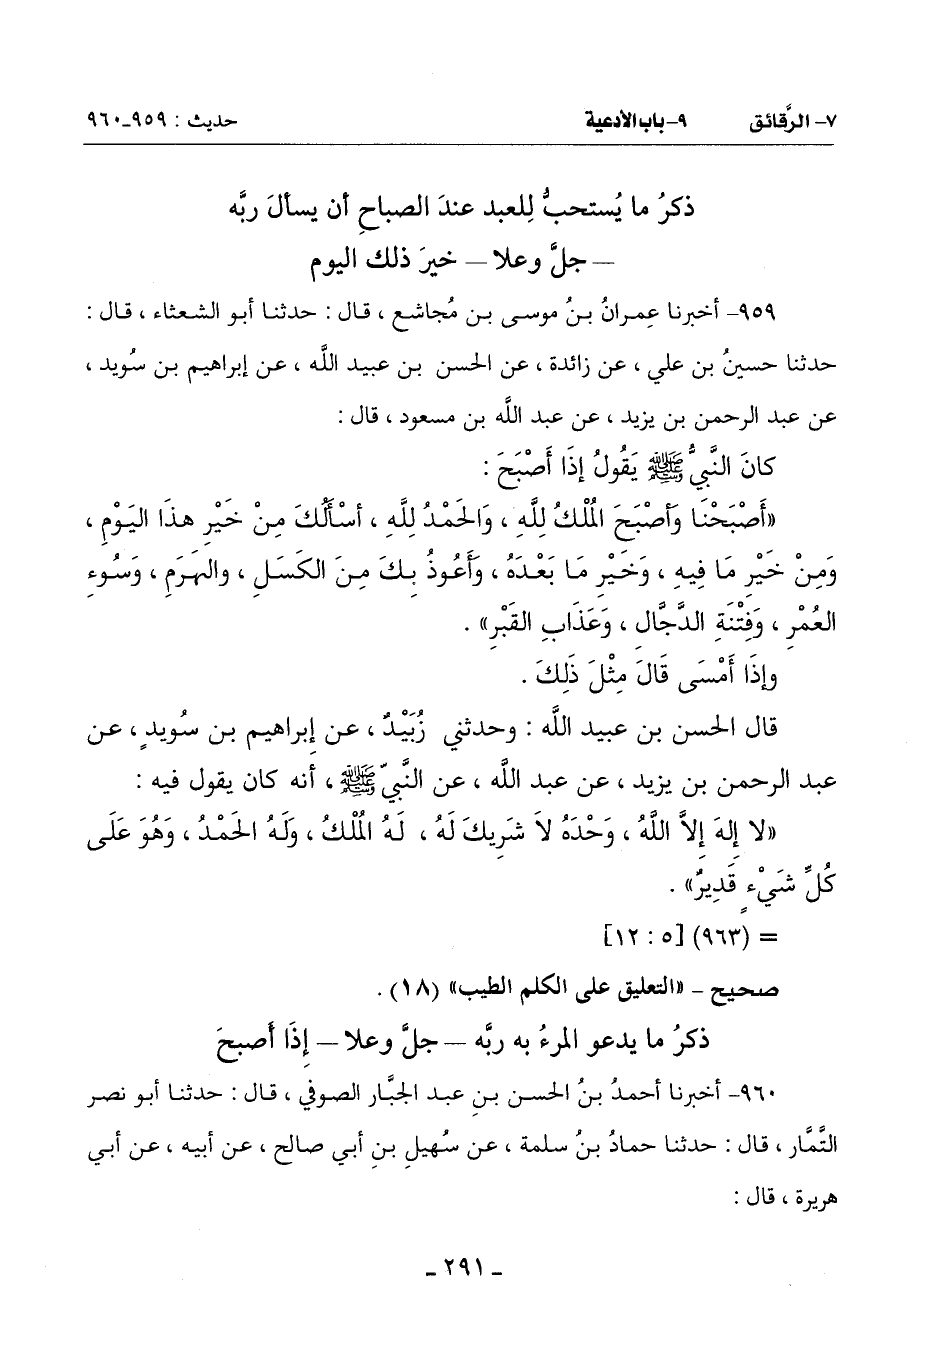 ٧- الرَّقائق ٩-باب الأدعية حديث : ٩٥٩_٩٦٠
ذكرُ ما يُستحبُّ لِلعبد عندَ الصباحِ أن يسألَ ربَّه
– جلَّ وعلا – خيرَ ذلك اليوم
٩٥٩- أخبرنا عِمرانُ بنُ موسى بن مُجاشع ، قال : حدثنا أبو الشعثاء ، قال :
حدثنا حسينُ بن علي ، عن زائدة ، عن الحسن بن عبيد الله ، عن إبراهيم بن سُويد ،
عن عبد الرحمن بن يزيد ، عن عبد الله بن مسعود ، قال :
كانَ النَّبيُّ ﷺ يَقُولُ إذَا أَصْبَحَ :
«أَصْبَحْنَا وَأصْبَحَ المُلْكُ لِلَّهِ ، وَالحَمْدُ لِلَّهِ ، أسْأَلُكَ مِنْ خَيْرِ هذَا اليَوْمِ ،
وَمِنْ خَيْرِ مَا فِيهِ ، وَخَيْرِ مَا بَعْدَهُ ، وَأَعُوذُ بِكَ مِنَ الكَسَلِ ، والهَرَمِ ، وَسُوءِ
العُمْرِ ، وَفِتْنَةِ الدَّجَّالِ ، وَعَذَابِ القَبْرِ» .
وإذَا أَمْسَى قَالَ مِثْلَ ذَلِكَ .
قال الحسن بن عبيد الله : وحدثني زُبَيْدٌ ، عن إبراهيم بن سُويدٍ ، عن
عبد الرحمن بن يزيد ، عن عبد الله ، عن النَّبيّ ﷺ ، أنه كان يقول فيه :
«لا إلهَ إلاَّ اللَّهُ ، وَحْدَهُ لاَ شَرِيكَ لَهُ ، لَهُ المُلْكُ ، وَلَهُ الحَمْدُ ، وَهُوَ عَلَى
كُلِّ شَيْءٍ قَدِيرٌ» .
= (٩٦٣) [٥ : ١٢]
صحيح - «التعليق على الكلم الطيب» (١٨) .
ذكرُ ما يدعو المرءُ به ربَّه – جلَّ وعلا – إِذَا أَصبحَ
٩٦٠- أخبرنا أحمدُ بنُ الحسن بنِ عبد الجبَّار الصوفي ، قال : حدثنا أبو نصر
التَّمَّار ، قال : حدثنا حمادُ بنُ سلمة ، عن سُهيلِ بنِ أبي صالح ، عن أبيه ، عن أبي
هريرة ، قال :
- ٢٩١ -